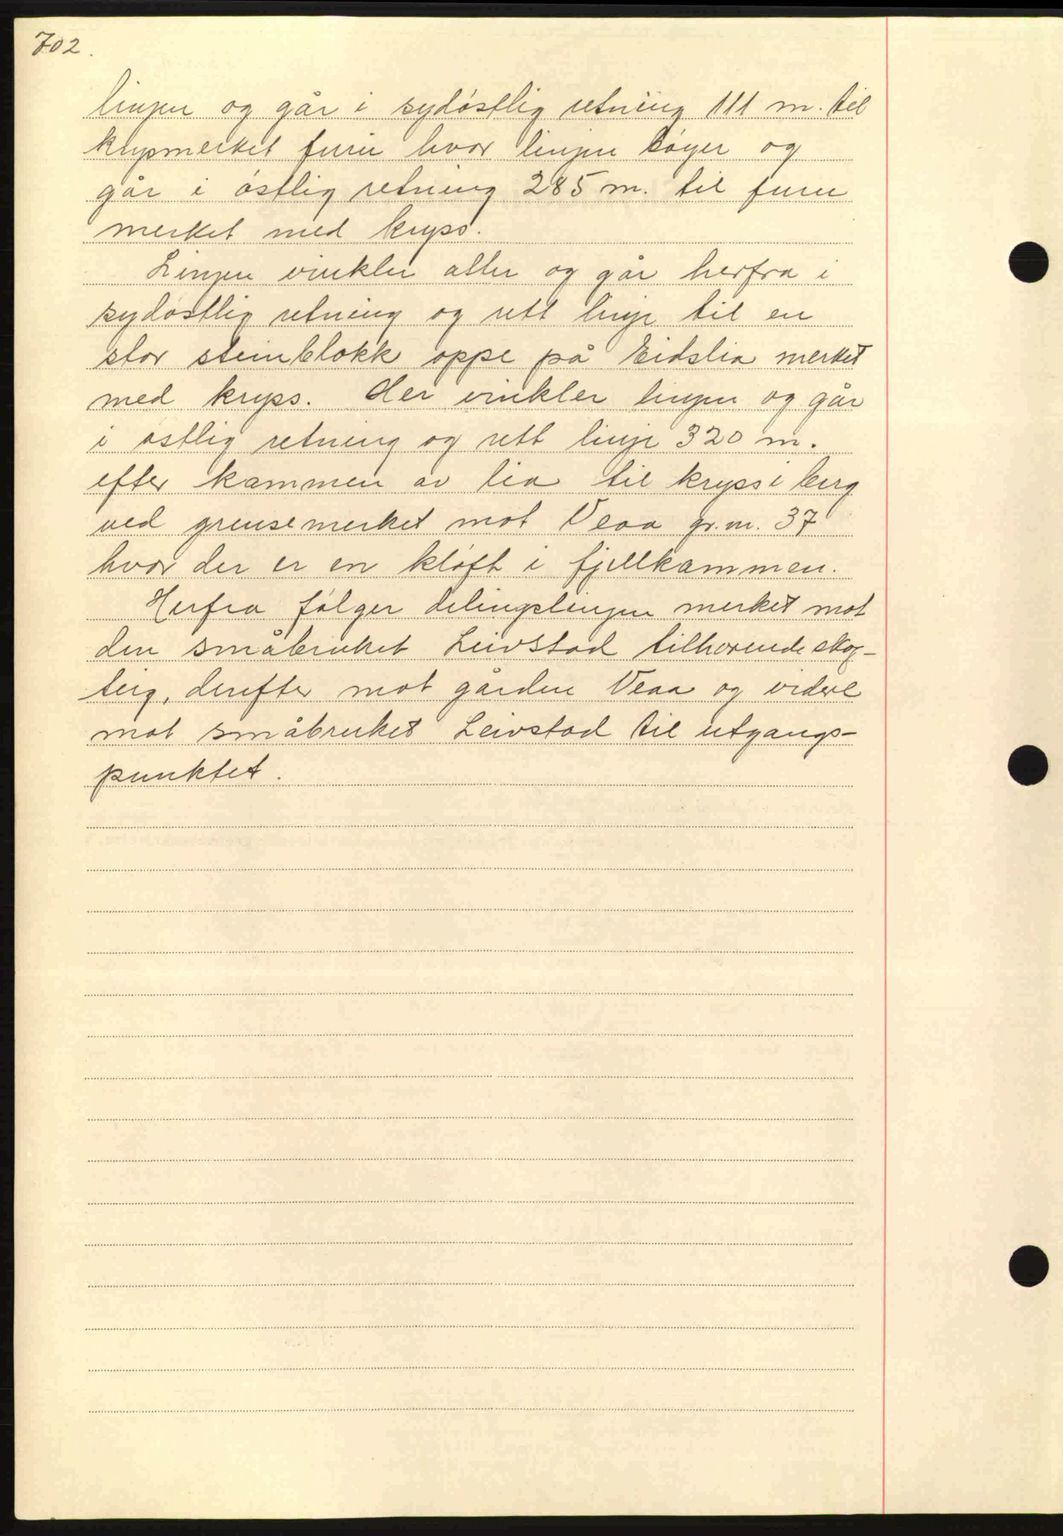 702.
linjen og går i sydöstlig retning 111 m. til
krysmerket furu hvor linjen böyer og
går i östlig retning 285 m. til furu
merket med kryss.
Linjen vinkler atter og går herfra i
sydostlig retning og rett linje til en
stor steinblokk oppe på Eidslia merket
med kryss. Her vinkler linjen og går
i ostlig retning og rett linje 320 m.
efter kammen av lia til kryss i berg
ved grensemerket mot Veaa gr. nr. 37
hvor der er en klöft i fjellkammen.
Herfra fölger delingslinjen merket mot
den småbruket Leivstad tilhorende skog-
teig, derefter mot gården Veaa og videre
mot småbruket Leivstad til utgangs-
punktet.